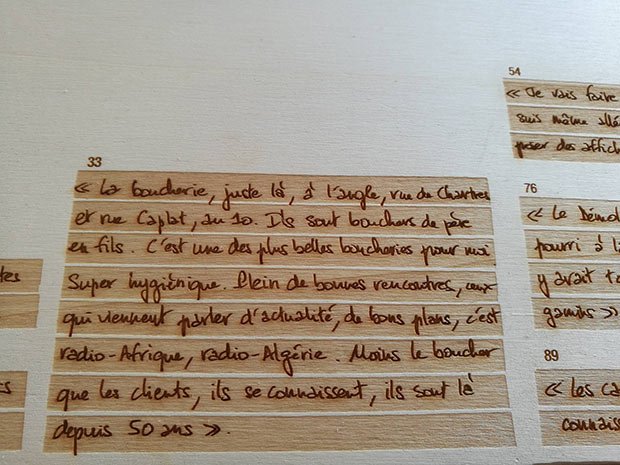 33
« La boucherie, juste là, à l'angle, rue de Chartres
et rue Caplat, au 10. Ils sont bouchers de père
en fils. C'est une des plus belles boucheries pour moi.
Super hygiénique. Plein de bonnes rencontres, ceux
qui viennent parler d'actualité, de bons plans, c'est
radio-Afrique, radio-Algérie. Moins le boucher
que les clients, ils se connaissent, ils sont là
depuis 50 ans ».
54
« Je vais faire
suis même allé
poser des affich
76
« Le Démol
pourri à l
y avait t
gamins »
89
« Les ca
connais
tes